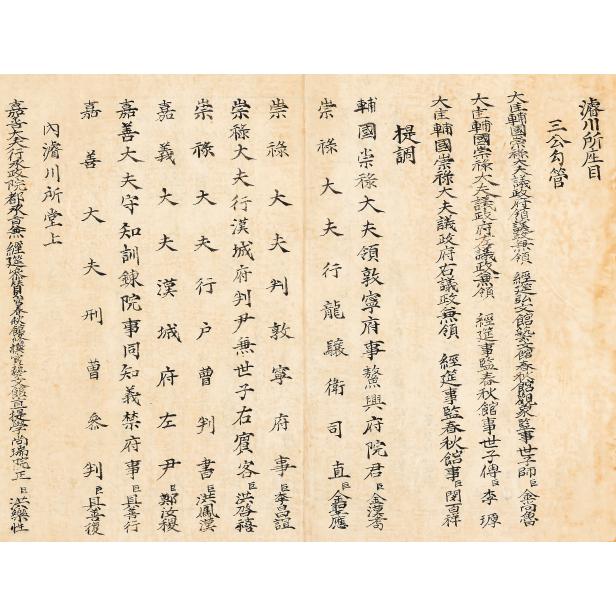 濬川所座目
三公勾管
大匡輔國崇祿大夫議政府領議政兼領 經筵弘文館藝文館春秋館觀象監事世子師臣金尚魯
大匡輔國崇祿大夫議政府左議政兼領 經筵事監春秋館事世子傅臣李㻑
大匡輔國崇祿大夫議政府右議政兼領 經筵事監春秋館事臣閔百祥
提調
輔國崇祿大夫領敦寧府事鰲興府院君臣金漢耉
崇祿大夫行龍驤衛司直臣金聖應
崇祿大夫判敦寧府事臣李昌誼
崇祿大夫行漢城府判尹兼世子右賓客臣洪啓禧
崇祿大夫行戶曹判書臣洪鳳漢
嘉義大夫漢城府左尹臣鄭汝稷
嘉善大夫守知訓鍊院事同知義禁府事臣具善行
嘉善大夫刑曹參判臣具善復
內濬川所堂上
嘉善大夫行承政院都承旨兼 經筵參贊官春秋館修撰官藝文館直提學尚瑞院正臣洪樂性